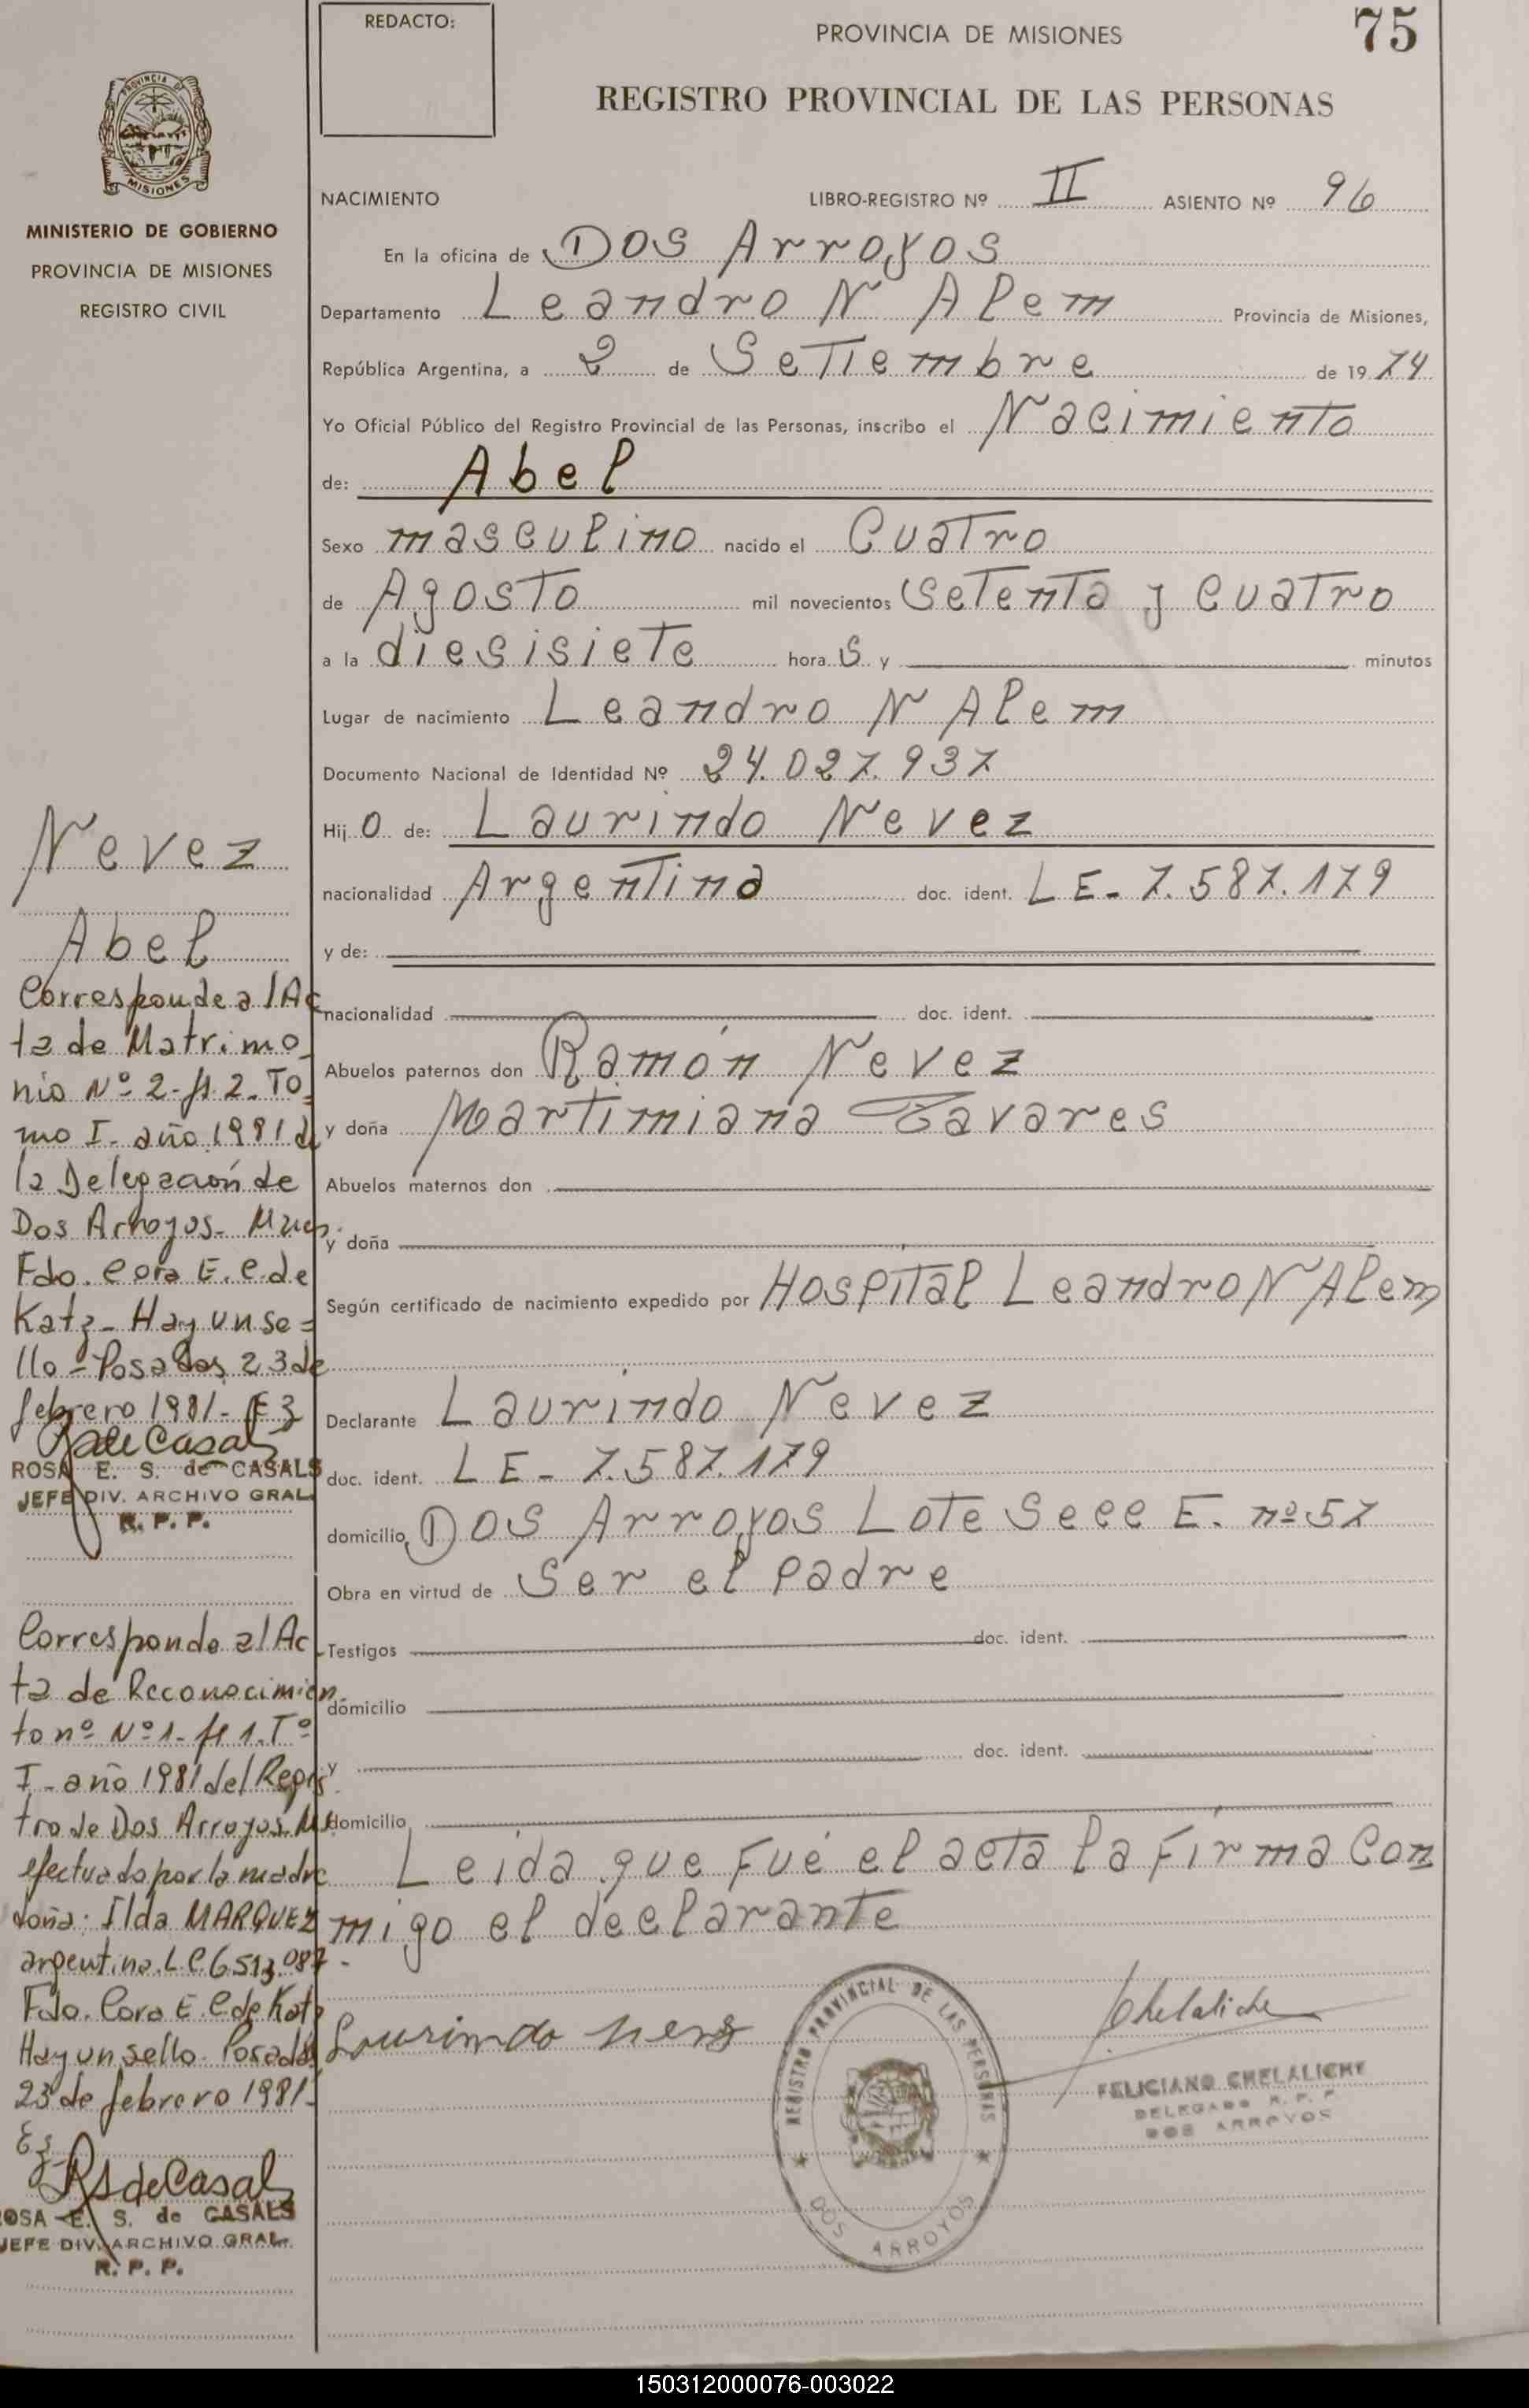 REDACTO:
PROVINCIA DE MISIONES
75
REGISTRO PROVINCIAL DE LAS PERSONAS
PROVINCIA DE
MISIONES
MINISTERIO DE GOBIERNO
PROVINCIA DE MISIONES
REGISTRO CIVIL
NACIMIENTO LIBRO-REGISTRO Nº II ASIENTO Nº 96
En la oficina de Dos Arroyos
Departamento Leandro N Alem Provincia de Misiones,
República Argentina, a 2 de Setiembre de 19 74
Yo Oficial Público del Registro Provincial de las Personas, inscribo el Nacimiento
de: Abel
Sexo masculino nacido el Cuatro
de Agosto mil novecientos setenta y cuatro
a la diesisiete hora s y minutos
Lugar de nacimiento Leandro N Alem
Documento Nacional de Identidad Nº 24.027.937
Hij o de: Laurindo Nevez
nacionalidad Argentina doc. ident. LE-7.587.179
y de:
nacionalidad doc. ident.
Abuelos paternos don Ramón Nevez
y doña Martimiana Tavares
Abuelos maternos don
y doña
Según certificado de nacimiento expedido por Hospital Leandro N Alem
Declarante Laurindo Nevez
doc. ident. LE-7.587.179
domicilio Dos Arroyos Lote Secc E. nº 57
Obra en virtud de Ser el padre
Testigos doc. ident.
domicilio
y doc. ident.
domicilio
Leida que fué el acta la firma con
migo el declarante
Laurindo
REGISTRO PROVINCIAL DE LAS PERSONAS
DOS ARROYOS
Chelaliche
FELICIANO CHELALICHE
DELEGADO R. P. P.
DOS ARROYOS
Nevez
Abel
Corresponde al Ac
ta de Matrimo
nio Nº 2-fl 2-To
mo I-año 1981 de
la Delegación de
Dos Arroyos- Mnes.
Fdo. Cora E. C. de
Katz- Hay un se=
llo-Posadas 23 de
febrero 1981- Ez
RSdeCasals
ROSA E. S. de CASALS
JEFE DIV. ARCHIVO GRAL.
R. P. P.
Corresponde al Ac
ta de Reconocimien
to nº Nº 1- fl 1. Tº
I-año 1981 del Regis
tro de Dos Arroyos. Ms
efectuado por la madre
doña: Ilda MARQUEZ
argentina L.C 6513.087-
Fdo. Cora E. C de Katz
Hay un sello. Posadas
23 de febrero 1981-
Ez
RSdeCasals
ROSA E. S. de CASALS
JEFE DIV. ARCHIVO GRAL.
R. P. P.
150312000076-003022